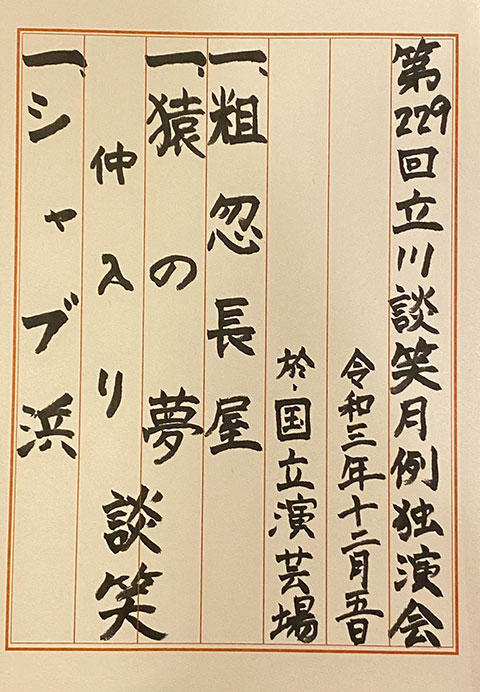 第229回立川談笑月例独演会
令和三年十二月五日
於・国立演芸場
一、粗忽長屋
一、猿の夢
仲入り
談笑
一、シャブ浜